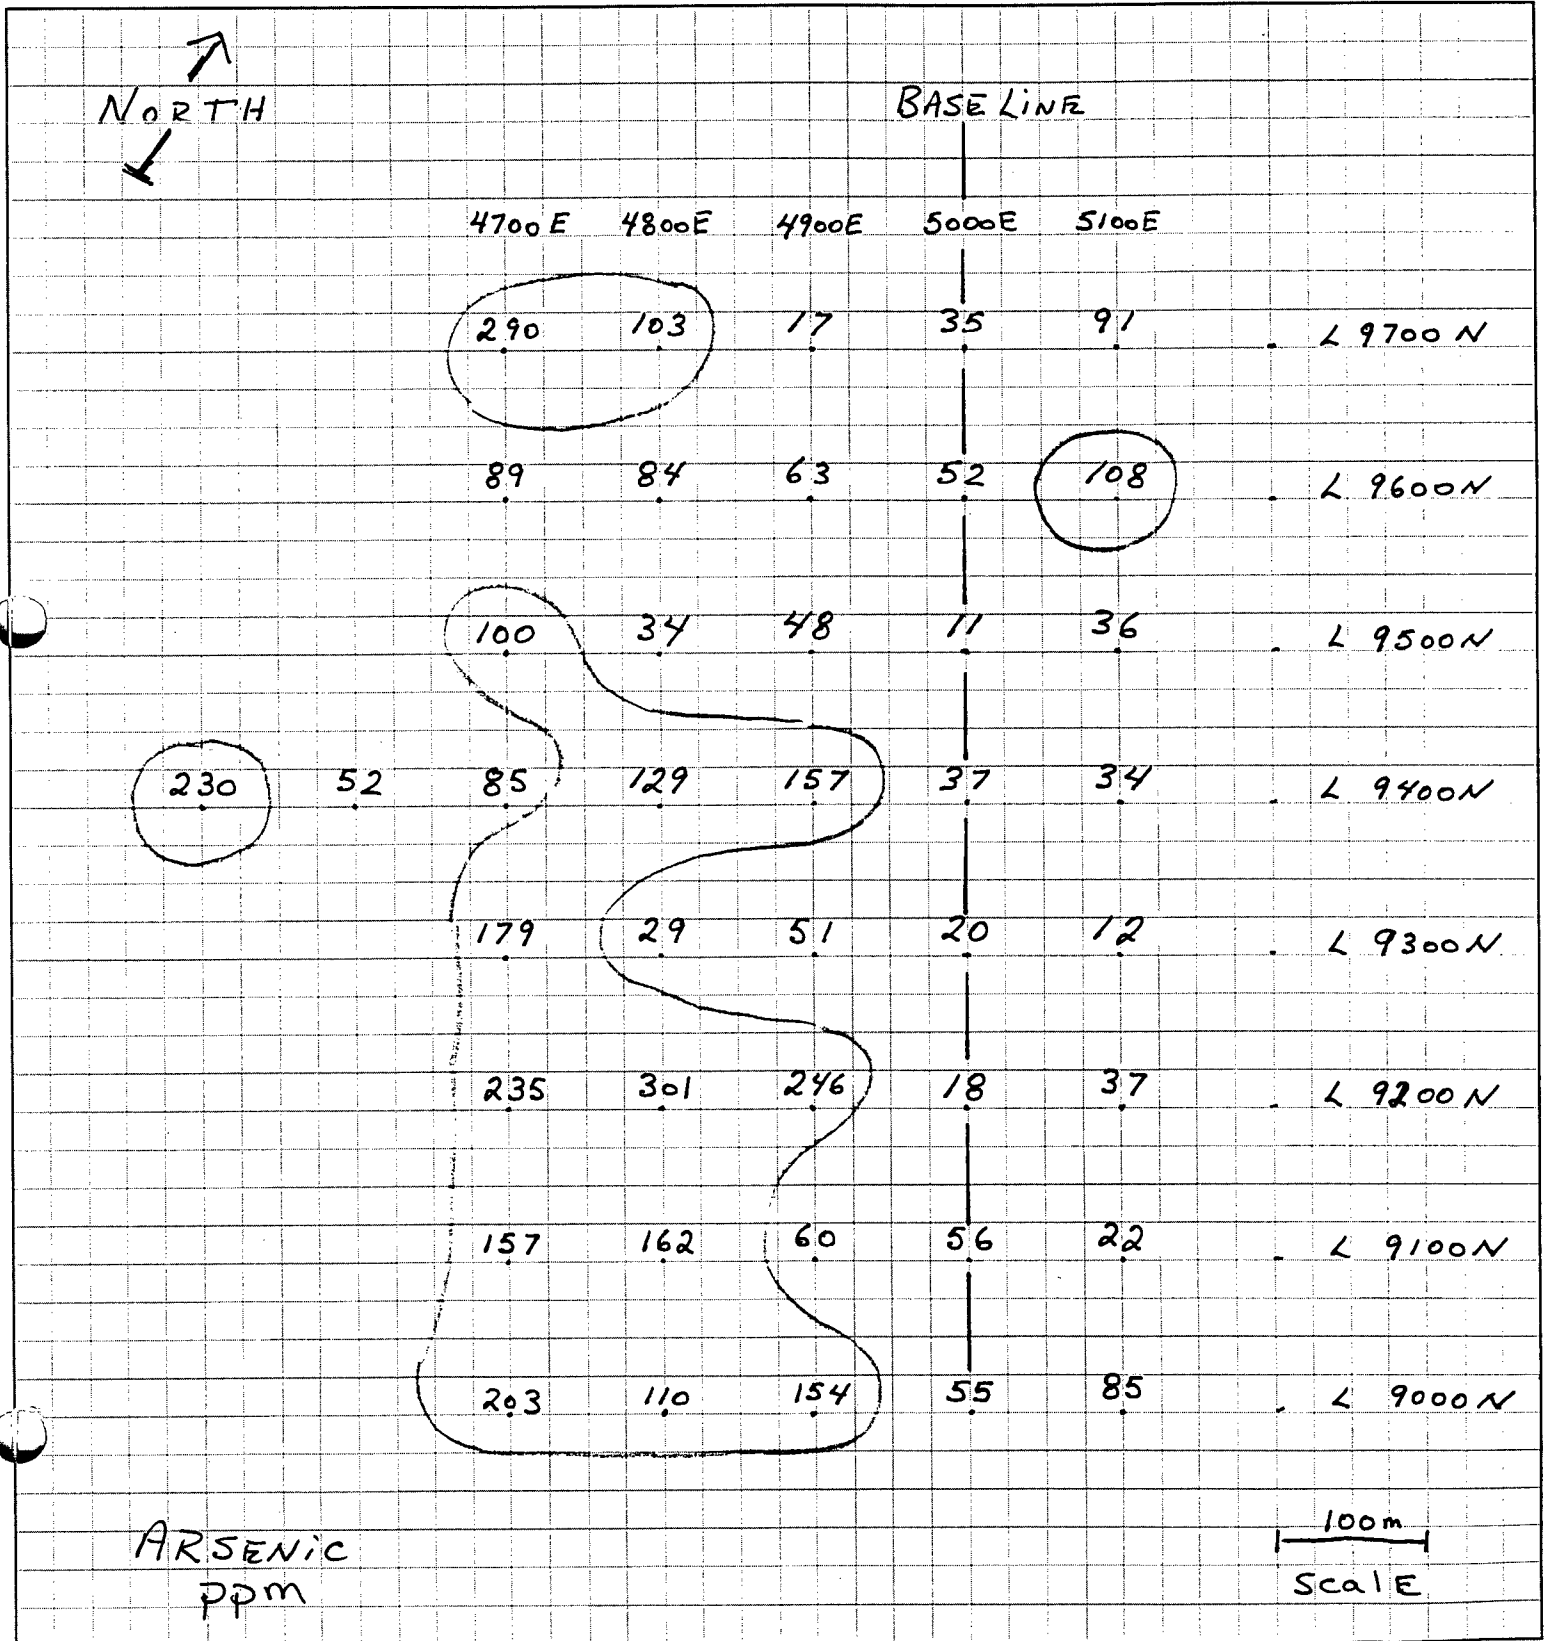 NORTH
BASE LINE
4700E 4800E 4900E 5000E 5100E
290 103 17 35 91 L 9700 N
89 84 63 52 108 L 9600 N
100 34 48 11 36 L 9500 N
230 52 85 129 157 37 34 L 9400 N
179 29 51 20 12 L 9300 N
235 301 246 18 37 L 9200 N
157 162 60 56 22 L 9100 N
203 110 154 55 85 L 9000 N
ARSENiC
ppm
100m
scalE